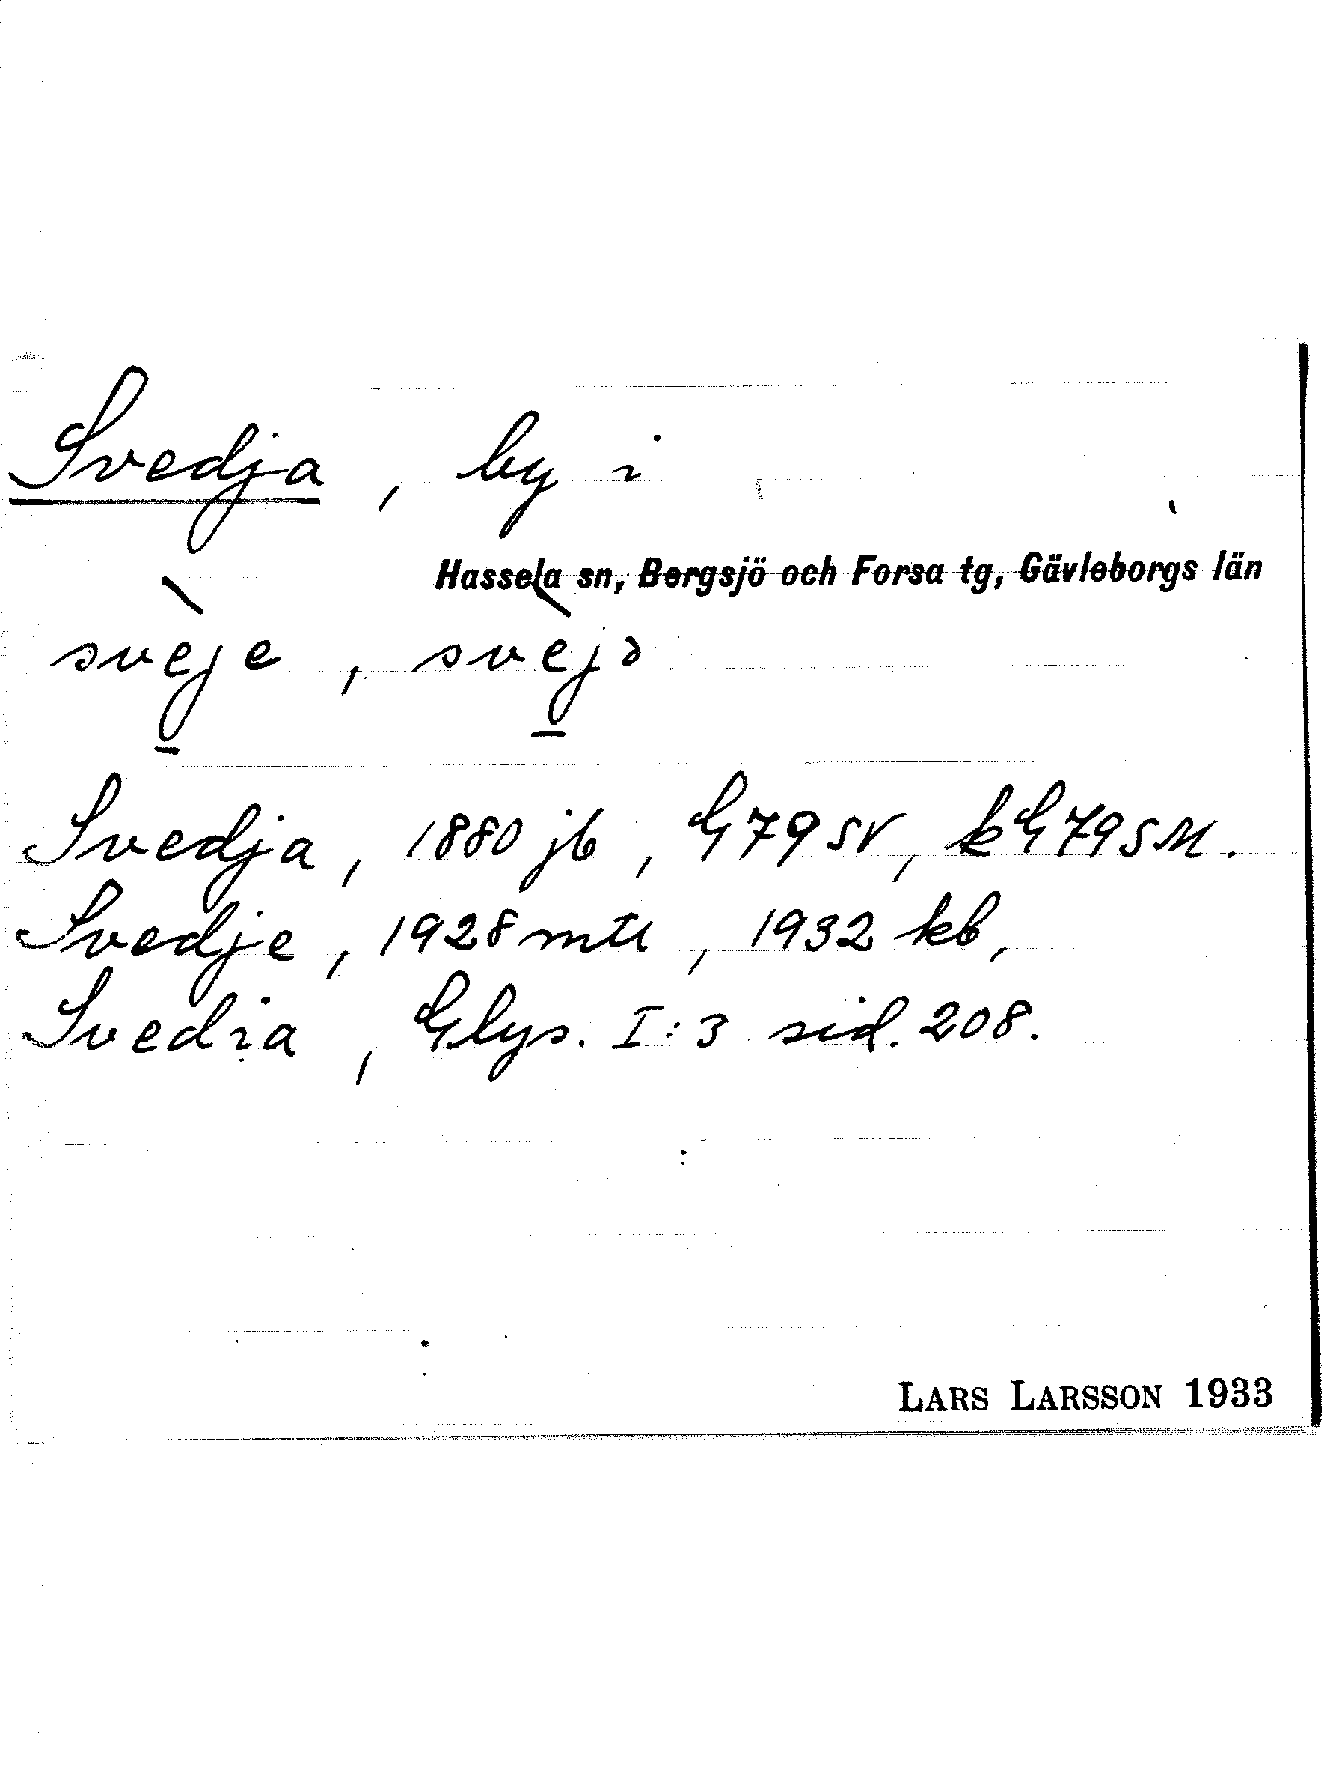 Svedja, by i
Hassela sn, Bergsjö och Forsa tg, Gävleborgs län
svèje, svèjə
Svedja, 1880 jb, G79SV, kG79SM.
Svedje, 1928 mtl, 1932 kb,
Svedia, Glys. I:3 sid. 208.
LARS LARSSON 1933